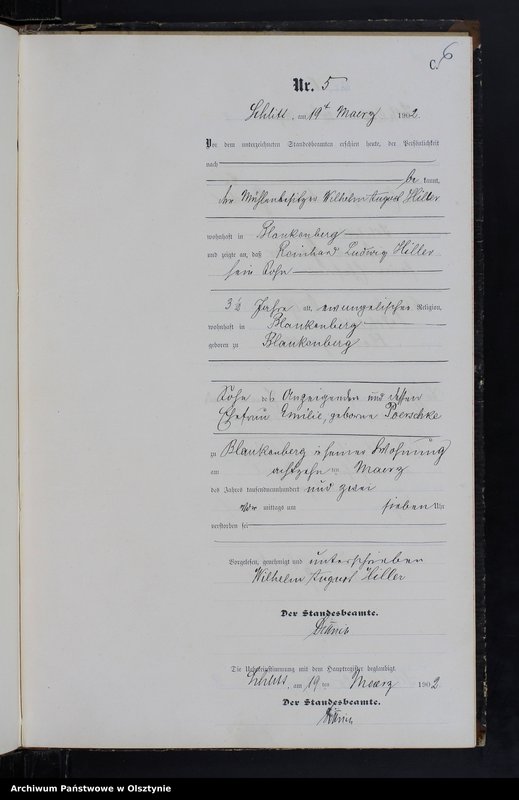 C. 6
Nr. 5
Schlitt, am 19t Maerz 1902.
Vor dem unterzeichneten Standesbeamten erschien heute, der Persönlichkeit
nach
be kannt,
der Mühlenbesitzer Wilhelm August Hiller
wohnhaft in Blankenberg
und zeigte an, daß Reinhard Ludwig Hiller
sein Sohn
3 ½ Jahre alt, evangelischer Religion,
wohnhaft in Blankenberg
geboren zu Blankenberg
Sohn des Anzeigenden und dessen
Ehefrau Emilie, geborne Poerschke
zu Blankenberg in seiner Wohnung
am achtzehn ten Maerz
des Jahres tausendneunhundert und zwei
mittags um sieben Uhr
verstorben sei
Vorgelesen, genehmigt und unterschrieben
Wilhelm August Hiller
Der Standesbeamte.
Die Uebereinstimmung mit dem Hauptregister beglaubigt.
Schlitt, am 19 ten Maerz 1902
Der Standesbeamte.
Archiwum Państwowe w Olsztynie